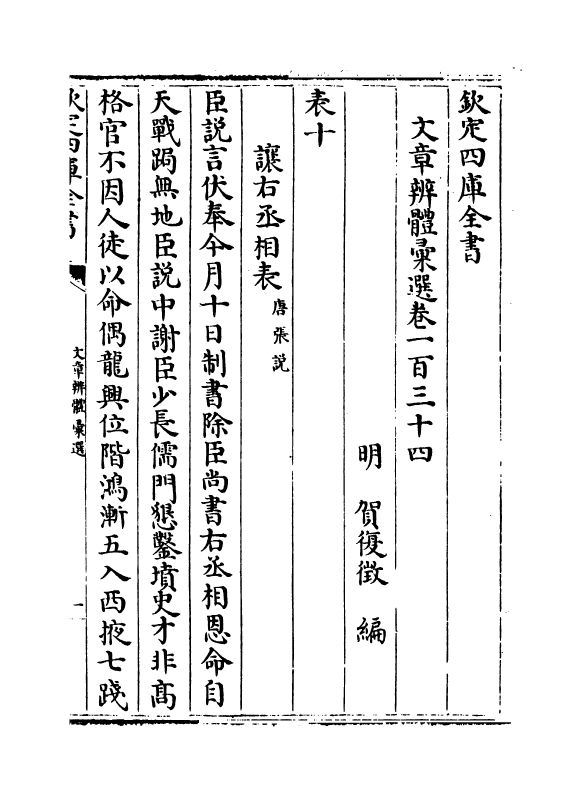 欽定四庫全書
文章辨體彚選卷一百三十四
明 賀復徵 編
表十
讓右丞相表唐張説
臣説言伏奉今月十日制書除臣尚書右丞相恩命自
天戰跼無地臣説中謝臣少長儒門懇鑿墳史才非髙
格官不因人徒以命偶龍興位階鴻漸五入西掖七踐
欽定四庫全書
文章辨體彚選
一